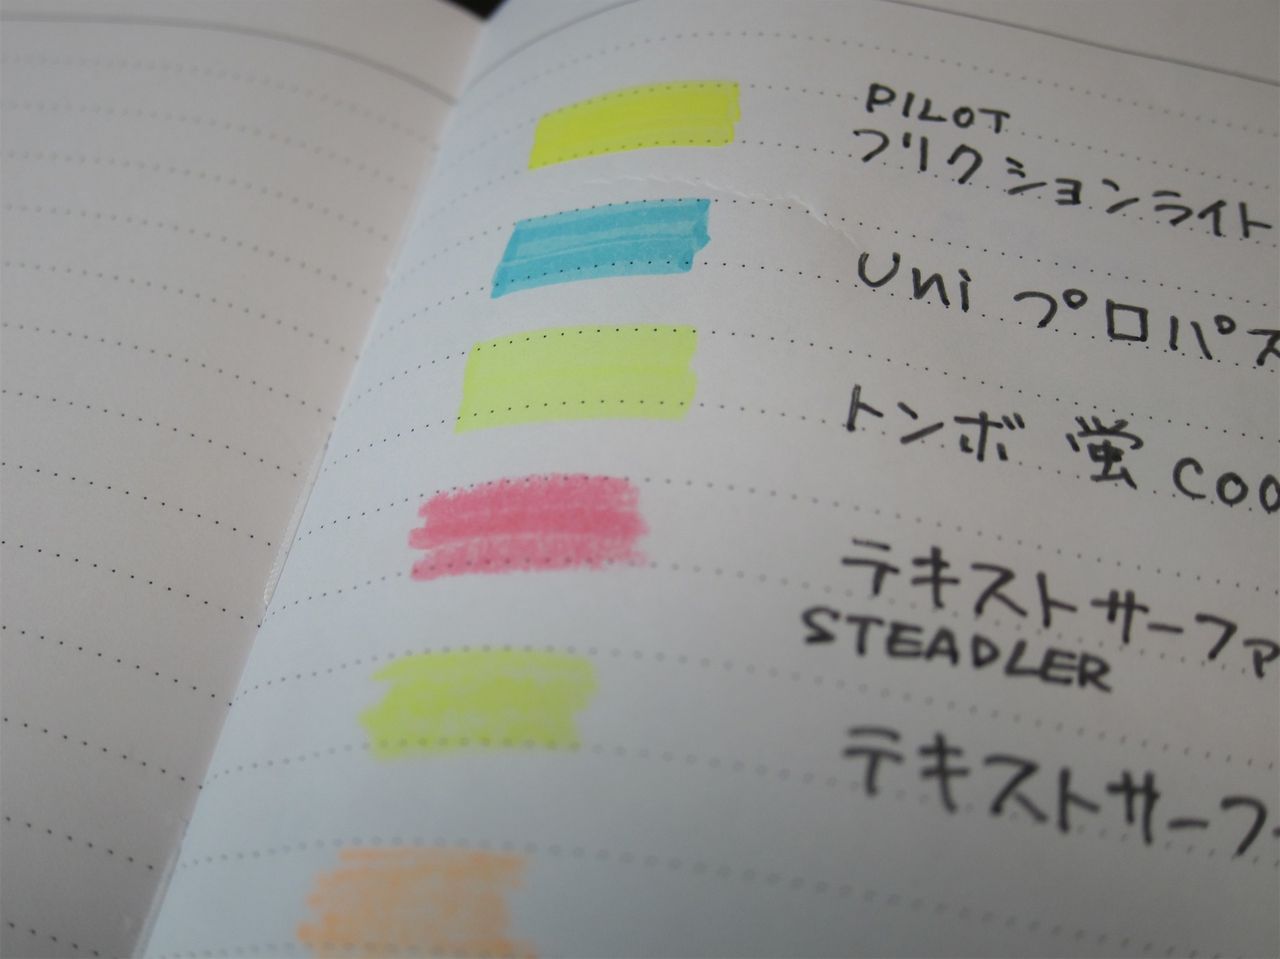 PILOT
フリクションライト
Uni プロパス
トンボ 蛍 COO
テキストサーファ
STEADLER
テキストサーフ